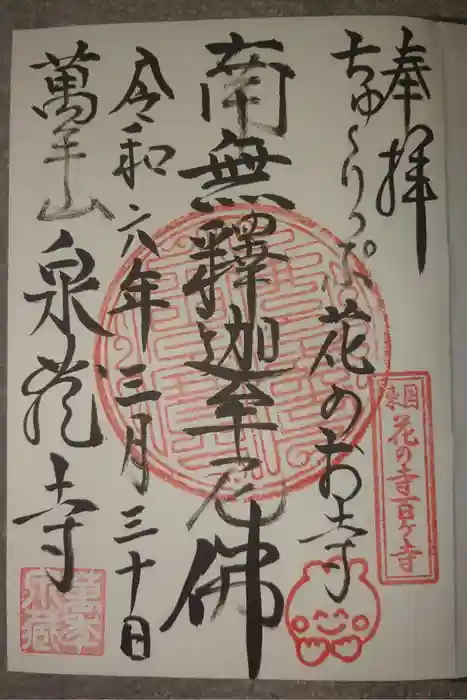 奉拝
ちゅーりっぷ花のお寺
南無釋迦牟尼佛
令和六年三月三十日
萬年山 泉蔵寺
東国花の寺百ヶ寺